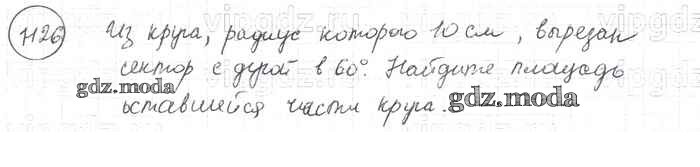 1126 Из круга, радиус которого 10 см, вырезан
сектор с дугой в 60°. Найдите площадь
gdz.moda
оставшейся части круга.
gdz.moda